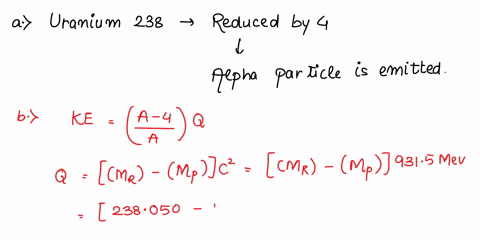 a.> Uranium 238 → Reduced by 4
↓
Alpha particle is emitted.
b.> KE = (A-4/A) Q
Q = [(M_R) - (M_P)]C² = [(M_R) - (M_P)] 931.5 MeV
= [238.050 -